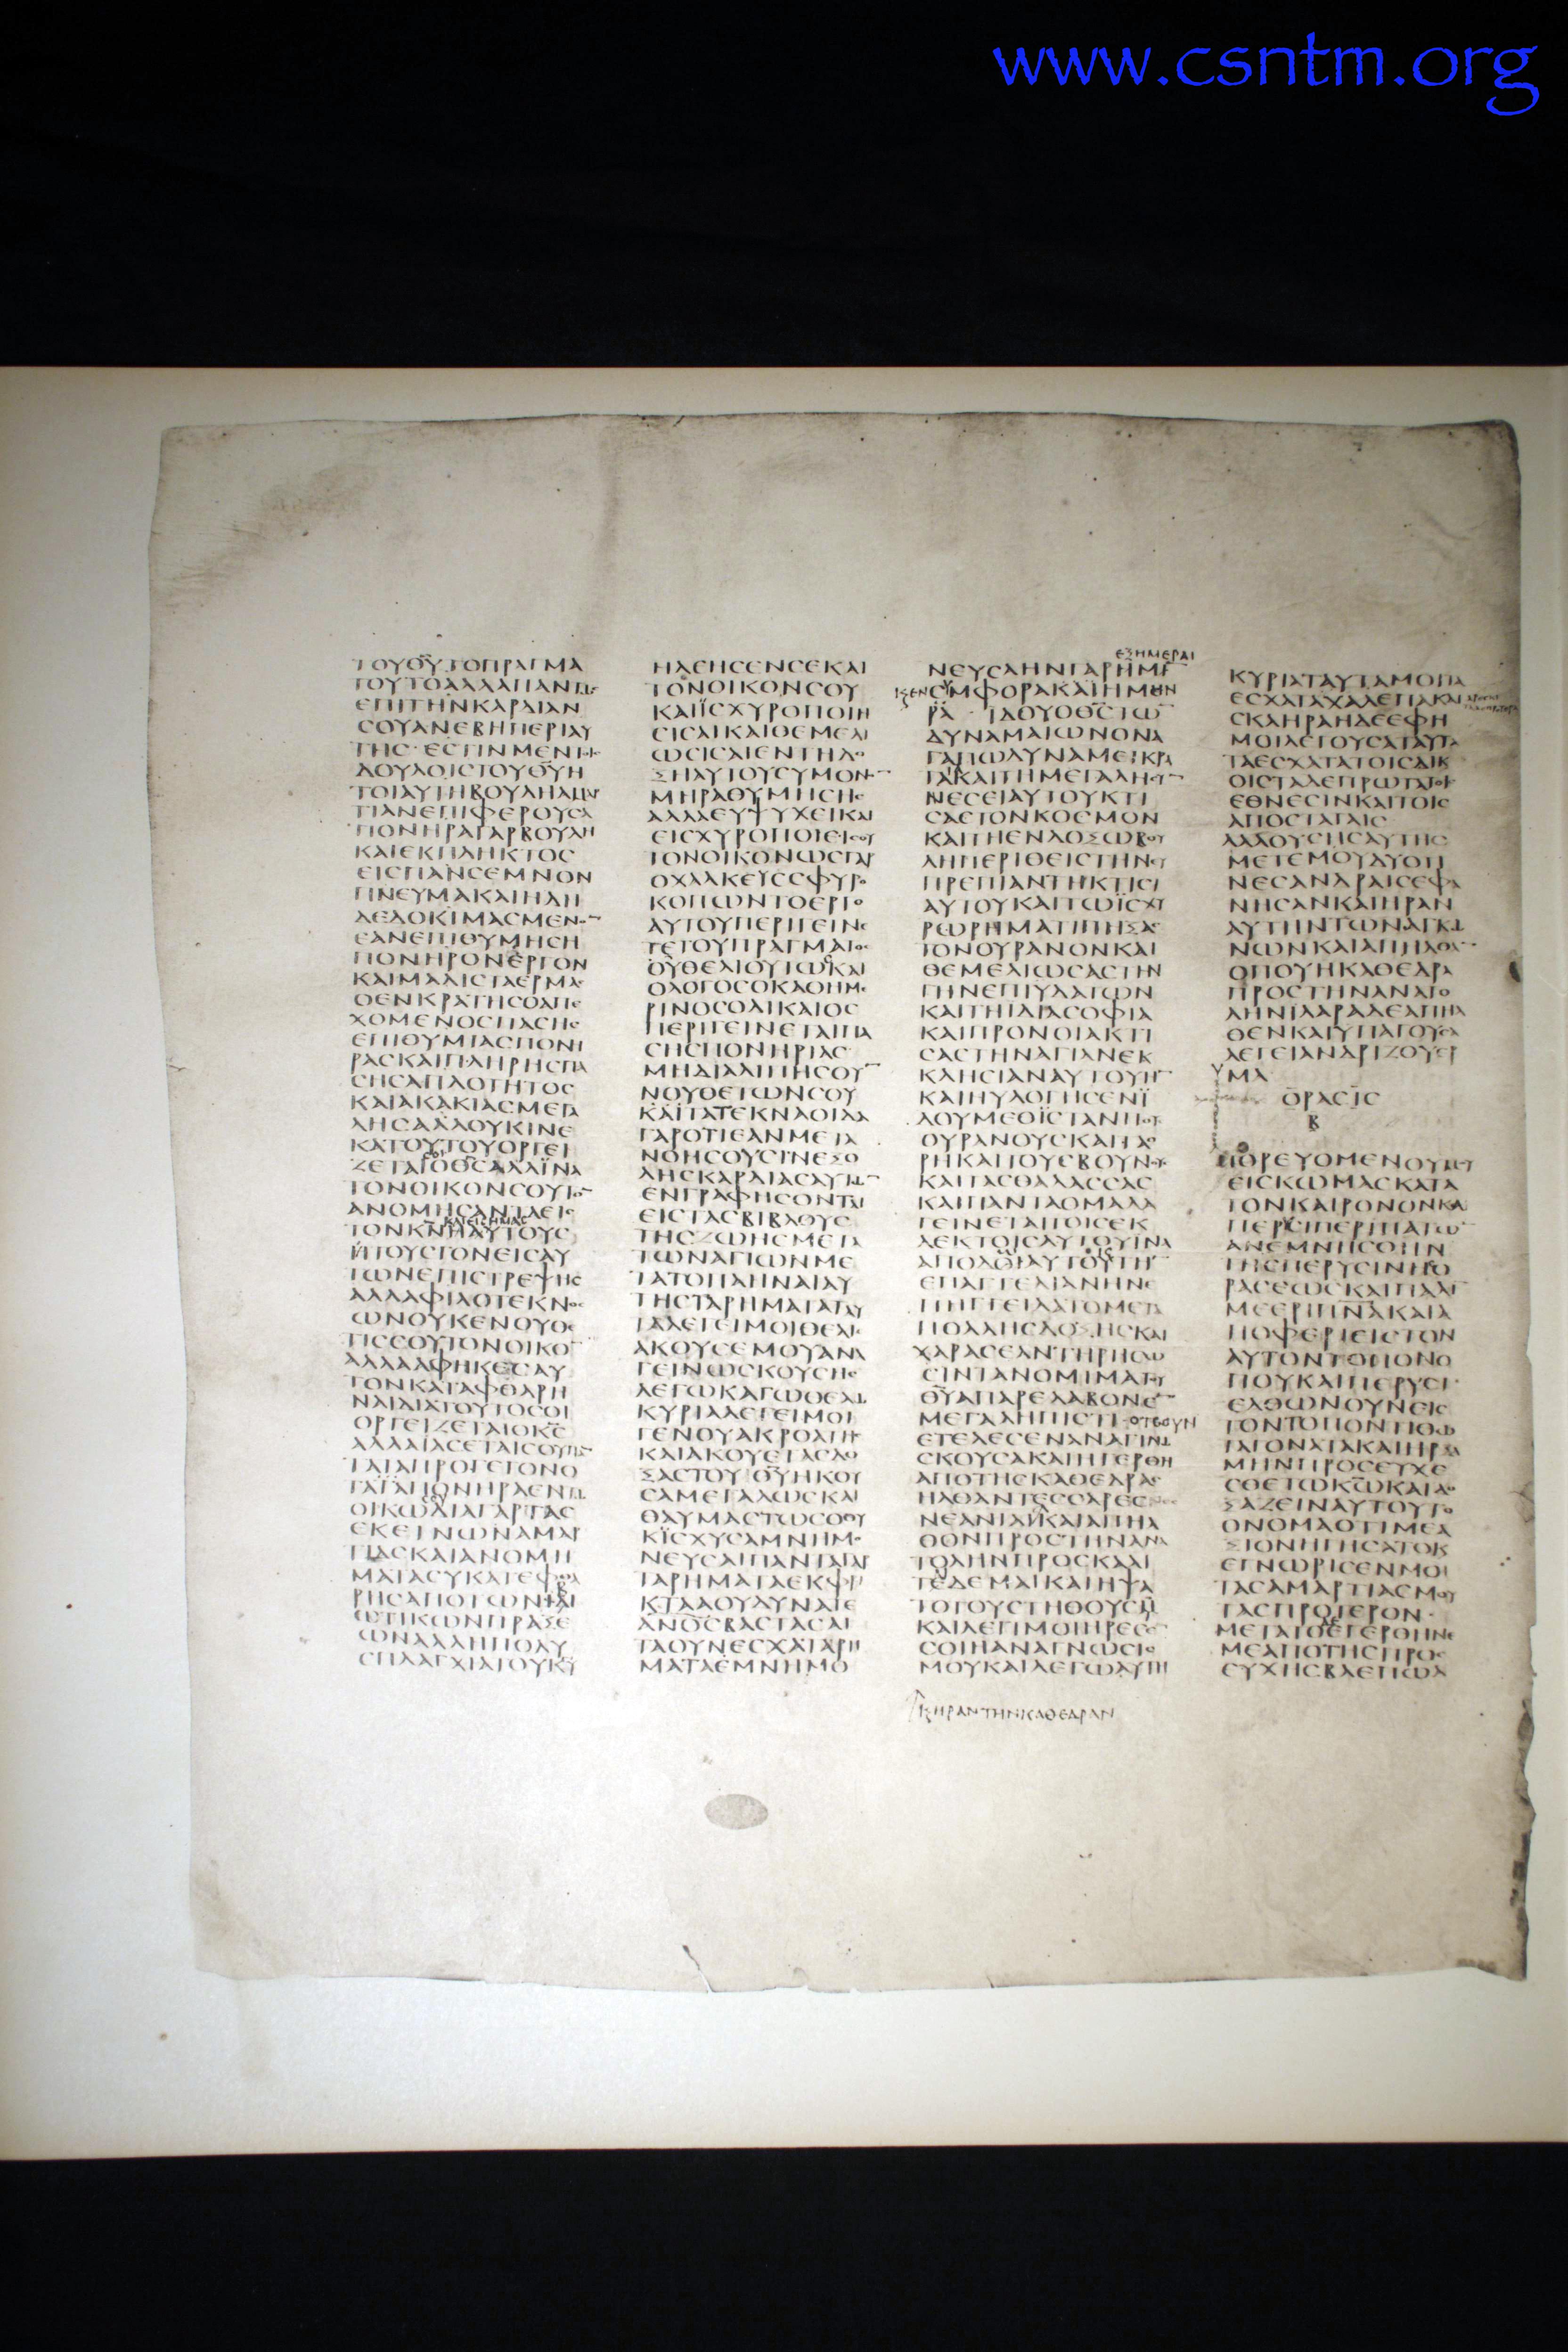 www.csntm.org
ΤΟΥΘΥ ΤΟΠΡΑΓΜΑ
ΤΟΥΤΟΑΛΛΑΠΑΝΤΩΣ
ΕΠΙΤΗΝΚΑΡΔΙΑΝ
ΣΟΥΑΝΕΒΗΠΕΡΙΑΥ
ΤΗΣ·ΕΣΤΙΝΜΕΝΤΟΙΣ
ΔΟΥΛΟΙΣΤΟΥΘΥΗ
ΤΟΙΑΥΤΗΒΟΥΛΗΑΜΑΡ
ΤΙΑΝΕΠΙΦΕΡΟΥΣΑ
ΠΟΝΗΡΑΓΑΡΒΟΥΛΗ
ΚΑΙΕΚΠΛΗΚΤΟΣ
ΕΙΣΠΑΝΣΕΜΝΟΝ
ΠΝΕΥΜΑΚΑΙΗΔΗ
ΔΕΔΟΚΙΜΑΣΜΕΝΟΝ
ΕΑΝΕΠΙΘΥΜΗΣΗ
ΠΟΝΗΡΟΝΕΡΓΟΝ
ΚΑΙΜΑΛΙΣΤΑΕΡΜΑΣ
ΟΕΝΚΡΑΤΗΣΟΑΠΕ
ΧΟΜΕΝΟΣΠΑΣΗΣ
ΕΠΙΘΥΜΙΑΣΠΟΝΗ
ΡΑΣΚΑΙΠΛΗΡΗΣΠΑ
ΣΗΣΑΠΛΟΤΗΤΟΣ
ΚΑΙΑΚΑΚΙΑΣΜΕΓΑ
ΛΗΣΑΛΛΟΥΚΙΝΕ
ΚΑΤΟΥΤΟΥΟΡΓΕΙ
ΖΕΤΑΙΟΘΣΑΛΛΙΝΑ
ΤΟΝΟΙΚΟΝΣΟΥΤΟΝ
ΑΝΟΜΗΣΑΝΤΑΕΙΣ
ΤΟΝΚΝ
ΚΑΙΕΙΣΗΜΑΣ
ΩΝΟΥΚΕΝΟΥΘΕ
ΤΙΣΣΟΥΤΟΝΟΙΚΟΝ
ΑΛΛΑΑΦΗΚΕΣΑΥ
ΤΟΝΚΑΤΑΦΘΑΡΗ
ΝΑΙΔΙΑΤΟΥΤΟΣΟΙ
ΟΡΓΕΙΖΕΤΑΙΟΚΣ
ΑΛΛΑΙΑΣΕΤΑΙΣΟΥΠΑΝ
ΤΑΤΑΠΡΟΓΕΓΟΝΟ
ΕΚΕΙΝΩΝΑΜΑΡ
ΤΙΑΣΚΑΙΑΝΟΜΗ
ΜΑΤΑΣΥΚΑΤΕΦΘΑ
ΡΗΣΑΠΟΤΩΝΒΙ
ΩΤΙΚΩΝΠΡΑΞΕ
ΩΝΑΛΛΗΠΟΛΥ
ΣΠΛΑΓΧΙΑΤΟΥΚΥ
ΗΛΕΗΣΕΝΣΕΚΑΙ
ΤΟΝΟΙΚΟΝΣΟΥ
ΚΑΙΙΣΧΥΡΟΠΟΙΗ
ΣΙΣΑΙΚΑΙΘΕΜΕΛΙ
ΩΣΙΣΑΙΕΝΤΗΔΟ
ΞΗΑΥΤΟΥΣΥΜΟΝΟΝ
ΜΗΡΑΘΥΜΗΣΗΣ
ΑΛΛΑΕΥΨΥΧΕΙΚΑΙ
ΕΙΣΧΥΡΟΠΟΙΕΙΣΟΥ
ΤΟΝΟΙΚΟΝΩΣΓΑΡ
ΟΧΑΛΚΕΥΣΣΦΥΡΟ
ΚΟΠΩΝΤΟΕΡΓΟΝ
ΑΥΤΟΥΠΕΡΙΓΕΙΝΕ
ΤΕΤΟΥΠΡΑΓΜΑΤΟΣ
ΟΥΘΕΛΙΟΥΤΩΣΚΑΙ
ΟΛΟΓΟΣΟΚΑΘΗΜΕ
ΡΙΝΟΣΟΔΙΚΑΙΟΣ
ΠΕΡΙΓΕΙΝΕΤΑΙΠΑ
ΣΗΣΠΟΝΗΡΙΑΣ
ΜΗΔΙΑΛΙΠΗΣΟΥΝ
ΝΟΥΘΕΤΩΝΣΟΥ
ΚΑΙΤΑΤΕΚΝΑΟΙΔΑ
ΓΑΡΟΤΙΕΑΝΜΕΤΑ
ΝΟΗΣΟΥΣΙΝΕΞΟ
ΛΗΣΚΑΡΔΙΑΣΑΥΤΩΝ
ΕΝΓΡΑΦΗΣΟΝΤΑΙ
ΕΙΣΤΑΣΒΙΒΛΟΥΣ
ΤΗΣΖΩΗΣΜΕΤΑ
ΤΩΝΑΓΙΩΝΜΕ
ΤΑΤΟΠΑΗΝΑΙΑΥ
ΤΗΣΤΑΡΗΜΑΤΑΤΑΥ
ΤΑΛΕΓΕΙΜΟΙΘΕΛΙΣ
ΑΚΟΥΣΕΜΟΥΑΝΑ
ΓΕΙΝΩΣΚΟΥΣΗΣ
ΛΕΓΩΚΑΓΩΘΕΛΩ
ΚΥΡΙΑΛΕΓΕΙΜΟΙ
ΓΕΝΟΥΑΚΡΟΑΤΗΣ
ΚΑΙΑΚΟΥΕΤΑΣΔΟ
ΞΑΣΤΟΥ ΘΥΗΚΟΥ
ΣΑΜΕΓΑΛΩΣΚΑΙ
ΘΑΥΜΑΣΤΩΣΟΟΥ
ΚΙΣΧΥΣΑΜΝΗΜΟ
ΝΕΥΣΑΙΠΑΝΤΑΓΑΡ
ΤΑΡΗΜΑΤΑΕΚΦΡΙ
ΚΤΑΑΟΥΔΥΝΑΤΕ
ΑΝΟΣΒΑΣΤΑΣΑΙ
ΤΑΟΥΝΕΣΧΑΤΑΡΗ
ΜΑΤΑΕΜΝΗΜΟ
ΕΞΗΜΕΡΑΙ
ΝΕΥΣΑΗΝΓΑΡΗΜΙ
ΣΥΜΦΟΡΑΚΑΙΗΜΩΝ
ΡΑ · ΙΔΟΥΟΘΣΤΩ
ΔΥΝΑΜΑΙΩΝΟΝΑ
ΝΕΣΕΙΑΥΤΟΥΚΤΙ
ΣΑΣΤΟΝΚΟΣΜΟΝ
ΚΑΙΤΗΕΝΔΟΞΩΒΟΥ
ΛΗΠΕΡΙΘΕΙΣΤΗΝΕΥ
ΠΡΕΠΙΑΝΤΗΚΤΙΣΙ
ΑΥΤΟΥΚΑΙΤΩΙΣΧΥ
ΡΩΡΗΜΑΤΙΠΗΞΑΣ
ΤΟΝΟΥΡΑΝΟΝΚΑΙ
ΘΕΜΕΛΙΩΣΑΣΤΗΝ
ΓΗΝΕΠΙΥΔΑΤΩΝ
ΚΑΙΤΗΙΔΙΑΣΟΦΙΑ
ΚΑΙΠΡΟΝΟΙΑΚΤΙ
ΣΑΣΤΗΝΑΓΙΑΝΕΚ
ΚΛΗΣΙΑΝΑΥΤΟΥΗΝ
ΚΑΙΗΥΛΟΓΗΣΕΝΙ
ΔΟΥΜΕΘΙΣΤΑΝΙΤΟΥΣ
ΟΥΡΑΝΟΥΣΚΑΙΤΑΟ
ΡΗΚΑΙΤΟΥΣΒΟΥΝΟΥΣ
ΚΑΙΤΑΣΘΑΛΑΣΣΑΣ
ΚΑΙΠΑΝΤΑΟΜΑΛΑ
ΓΕΙΝΕΤΑΙΤΟΙΣΕΚ
ΛΕΚΤΟΙΣΑΥΤΟΥΙΝΑ
ΑΠΟΔΩΑΥΤΟΙΣΤΗΝ
ΕΠΑΓΓΕΛΙΑΝΗΝΕ
ΠΗΓΓΕΙΛΑΤΟΜΕΤΑ
ΠΟΛΛΗΣΔΟΞΗΣΚΑΙ
ΧΑΡΑΣΕΑΝΤΗΡΗΣΩ
ΣΙΝΤΑΝΟΜΙΜΑΤΟΥ
ΘΥΑΠΑΡΕΛΑΒΟΝΕΝ
ΜΕΓΑΛΗΠΙΣΤΙ·ΟΤΕΟΥΝ
ΕΤΕΛΕΣΕΝΑΝΑΓΙΝΩ
ΣΚΟΥΣΑΚΑΙΗΓΕΡΘΗ
ΑΠΟΤΗΣΚΑΘΕΔΡΑΣ
ΗΛΘΑΝΤΕΣΣΑΡΕΣ
ΝΕΑΝΙΑΙΚΑΙΑΠΗΛ
ΘΟΝΠΡΟΣΤΗΝΑΝΑ
ΤΟΛΗΝΠΡΟΣΚΑΛΙ
ΤΕΔΕΜΑΙΚΑΙΗΨΑ
ΤΟΤΟΥΣΤΗΘΟΥΣ
ΚΑΙΛΕΓΙΜΟΙΗΡΕΣΕ
ΣΟΙΗΑΝΑΓΝΩΣΙΣ
ΜΟΥΚΑΙΛΕΓΩΑΥΤΗ
ΚΗΡΑΝΤΗΝΚΑΘΕΔΡΑΝ
ΚΥΡΙΑΤΑΥΤΑΜΟΙΤΑ
ΕΣΧΑΤΑΧΑΛΕΠΑΚΑΙ
ΣΚΛΗΡΑΗΔΕΕΦΗ
ΜΟΙΛΕΓΟΥΣΑΤΑΥΤΑ
ΤΑΕΣΧΑΤΑΤΟΙΣΔΙΚ
ΟΙΣΤΑΔΕΠΡΩΤΑΤΟΙΣ
ΕΘΝΕΣΙΝΚΑΙΤΟΙΣ
ΑΠΟΣΤΑΤΑΙΣ
ΛΑΛΟΥΣΗΣΑΥΤΗΣ
ΜΕΤΕΜΟΥΔΥΟΤΙ
ΝΕΣΑΝΔΡΑΙΣΕΦΑ
ΝΗΣΑΝΚΑΙΗΡΑΝ
ΑΥΤΗΝΤΩΝΑΓΚΩ
ΝΩΝΚΑΙΑΠΗΛΘΑΝ
ΟΠΟΥΗΚΑΘΕΔΡΑ
ΠΡΟΣΤΗΝΑΝΑΤΟ
ΛΗΝΙΛΑΡΑΔΕΑΠΗΛ
ΘΕΝΚΑΙΥΠΑΓΟΥΣΑ
ΛΕΓΕΙΑΝΔΡΙΖΟΥΕΡ
ΜΑ
ΟΡΑΣΙΣ
Β
ΠΟΡΕΥΟΜΕΝΟΥΜΟΥ
ΕΙΣΚΩΜΑΣΚΑΤΑ
ΤΟΝΚΑΙΡΟΝΟΝΚΑΙ
ΠΕΡΥΣΙΠΕΡΙΠΑΤΩΝ
ΑΝΕΜΝΗΣΘΗΝ
ΤΗΣΠΕΡΥΣΙΝΗΣΟ
ΡΑΣΕΩΣΚΑΙΠΑΛΙΝ
ΜΕΕΡΙΠΝΑΚΑΙΑ
ΠΟΦΕΡΙΕΙΣΤΟΝ
ΑΥΤΟΝΤΟΠΟΝΟ
ΠΟΥΚΑΙΠΕΡΥΣΙ·
ΕΛΘΩΝΟΥΝΕΙΣ
ΤΟΝΤΟΠΟΝΤΙΘΩ
ΤΑΓΟΝΑΤΑΚΑΙΗΡΞΑ
ΜΗΝΠΡΟΣΕΥΧΕ
ΣΘΕΤΩΚΩΚΑΙΔΟ
ΞΑΖΕΙΝΑΥΤΟΥΤΟ
ΟΝΟΜΑΟΤΙΜΕΑ
ΞΙΟΝΗΓΗΣΑΤΟΚ
ΕΓΝΩΡΙΣΕΝΜΟΙ
ΤΑΣΑΜΑΡΤΙΑΣΜΟΥ
ΤΑΣΠΡΟΤΕΡΟΝ·
ΜΕΑΠΟΤΗΣΠΡΟΣ
ΕΥΧΗΣΒΛΕΠΩΑ